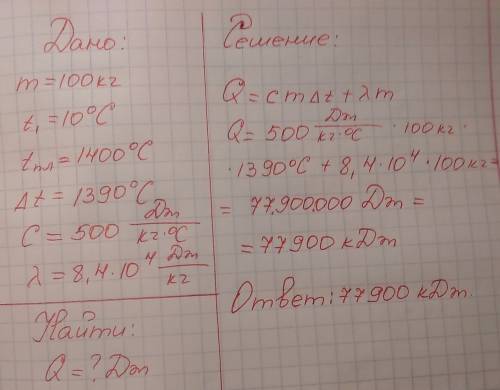 Дано:
m = 100 кг
t₁ = 10°C
tпл = 1400°C
Δt = 1390°C
C = 500 Дж/кг·°C
λ = 8,4·10⁴ Дж/кг
Найти:
Q = ? Дж
Решение:
Q = cmΔt + λm
Q = 500 Дж/кг·°C · 100 кг ·
· 1390°C + 8,4·10⁴ · 100 кг =
= 77,900,000 Дж =
= 77900 кДж
Ответ: 77900 кДж.